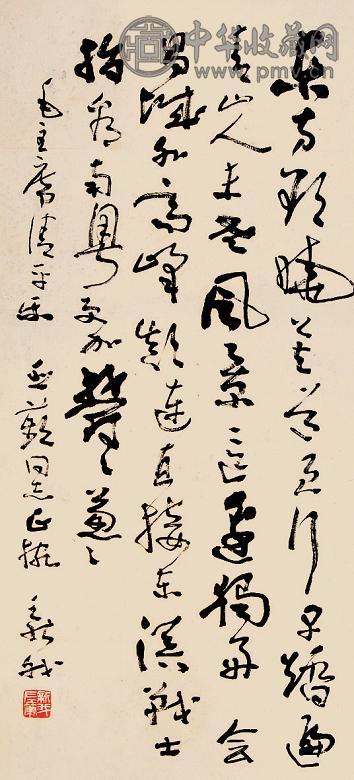 中华收藏网
www.pmv.cn
东方欲晓莫道君行早踏遍
青山人未老風景这边獨好会
昌城外高峰颠连直接东溟戰士
指看南粤更加鬱〻葱〻
毛主席清平乐 同志正